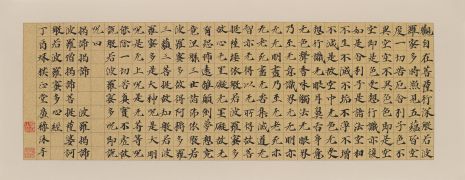 觀自在菩薩行深般若波
羅蜜多時照見五蘊皆空
度一切苦厄舍利子色不
異空空不異色色即是空
空即是色受想行識亦復
如是舍利子是諸法空相
不生不滅不垢不淨不增
不減是故空中无色无受
想行識无眼耳鼻舌身意
无色聲香味觸法无眼界
乃至无意識界无无明亦
无无明盡乃至无老死亦
无老死盡无苦集滅道无
智亦无得以无所得故菩
提薩埵依般若波羅蜜多
故心无罣礙无罣礙故无
有恐怖遠離顛倒夢想究
竟涅槃三世諸佛依般若
波羅蜜多故得阿耨多羅
三藐三菩提故知般若波
羅蜜多是大神咒是大明
咒是无上咒是无等等咒
能除一切苦真實不虛故
說般若波羅蜜多咒即說
咒曰
揭諦揭諦 波羅揭諦
波羅僧揭諦菩提薩婆訶
般若波羅蜜多心經
丁酉